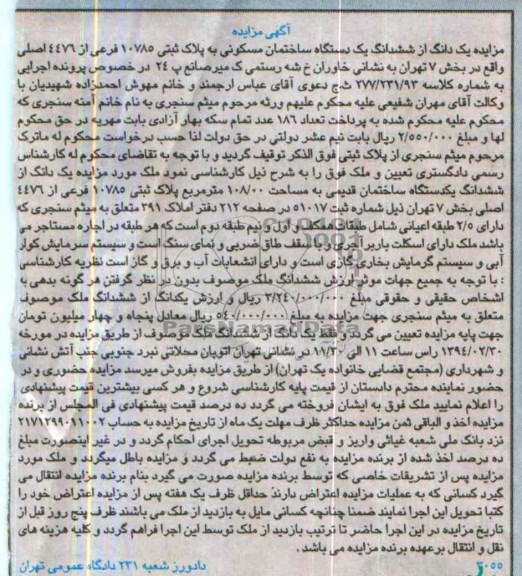 آگهی مزایده
مزایده یک دانگ از ششدانگ یک دستگاه ساختمان مسکونی به پلاک ثبتی ۱۰۷۸۵ فرعی از ۴۴۷۶ اصلی
واقع در بخش ۷ تهران به نشانی خاوران خ شه رستمی ک میرصانع پ ۲۴ در خصوص پرونده اجرایی
به شماره کلاسه ۲۷۷/۲۳۱/۹۳ ش.ج دعوی آقای عباس ارجمند و خانم مهوش احمدزاده شهیدیان با
وکالت آقای مهران شفیعی علیه محکوم علیهم ورثه مرحوم میثم سنجری به نام خانم آمنه سنجری که
محکوم علیه محکوم شده به پرداخت تعداد ۱۸۶ عدد تمام سکه بهار آزادی بابت مهریه در حق محکوم
لها و مبلغ ۲/۵۵۰/۰۰۰ ریال بابت نیم عشر دولتی در حق دولت لذا حسب درخواست محکوم له ماترک
مرحوم میثم سنجری از پلاک ثبتی فوق الذکر توقیف گردید و با توجه به تقاضای محکوم له کارشناس
رسمی دادگستری تعیین و ملک فوق را به شرح ذیل کارشناسی نمود ملک مورد مزایده یک دانگ از
ششدانگ یکدستگاه ساختمان قدیمی به مساحت ۱۰۸/۰۰ مترمربع پلاک ثبتی ۱۰۷۸۵ فرعی از ۴۴۷۶
اصلی بخش ۷ تهران ذیل شماره ثبت ۵۱۰۱۷ در صفحه ۲۱۲ دفتر املاک ۳۹۱ متعلق به میثم سنجری که
دارای ۲/۵ طبقه اعیانی شامل طبقات همکف و اول و نیم طبقه دوم است که هر طبقه در اجاره مستاجر می
باشد ملک دارای اسکلت باربر آجری و سقف طاق ضربی و نمای سنگ است و سیستم سرمایش کولر
آبی و سیستم گرمایش بخاری گازی است و دارای انشعابات آب و برق و گاز است نظریه کارشناسی
: با توجه به جمیع جهات موثر ارزش ششدانگ ملک موصوف بدون در نظر گرفتن هر گونه بدهی به
اشخاص حقیقی و حقوقی مبلغ ۳/۲۴۰/۰۰۰/۰۰۰ ریال و ارزش یکدانگ از ششدانگ ملک موصوف
متعلق به میثم سنجری جهت مزایده به مبلغ ۵۴۰/۰۰۰/۰۰۰ ریال معادل پنجاه و چهار میلیون تومان
جهت پایه مزایده تعیین می گردد و فقط یک دانگ از ششدانگ ملک موصوف از طریق مزایده در مورخه
۱۳۹۴/۰۲/۳۰ راس ساعت ۱۱ الی ۱۱/۳۰ در نشانی تهران اتوبان محلاتی نبرد جنوبی جنب آتش نشانی
و شهرداری (مجتمع قضایی خانواده یک تهران) از طریق مزایده بفروش میرسد مزایده حضوری و در
حضور نماینده محترم دادستان از قیمت پایه کارشناسی شروع و هر کسی بیشترین قیمت پیشنهادی
را اعلام نمایید ملک فوق به ایشان فروخته می گردد ده درصد قیمت پیشنهادی فی المجلس از برنده
مزایده اخذ و الباقی ثمن مزایده حداکثر ظرف مهلت یک ماه از تاریخ مزایده به حساب ۲۱۷۱۲۹۹۰۱۱۰۰۲
نزد بانک ملی شعبه غیاثی واریز و قبض مربوطه تحویل اجرای احکام گردد و در غیر اینصورت مبلغ
ده درصد اخذ شده از برنده مزایده به نفع دولت ضبط می گردد و مزایده باطل میگردد و ملک مورد
مزایده پس از تشریفات خاصی که توسط برنده مزایده صورت می گیرد بنام برنده مزایده انتقال می
گیرد کسانی که به عملیات مزایده اعتراض دارند حداقل ظرف یک هفته پس از مزایده اعتراض خود را
کتبا تحویل این اجرا نمایند ضمنا چنانچه کسانی مایل به بازدید از ملک می باشند ظرف پنج روز قبل از
تاریخ مزایده در این اجرا حاضر تا ترتیب بازدید از ملک توسط این اجرا فراهم گردد و کلیه هزینه های
نقل و انتقال برعهده برنده مزایده می باشد.
۳۰۵۵ دادورز شعبه ۲۳۱ دادگاه عمومی تهران